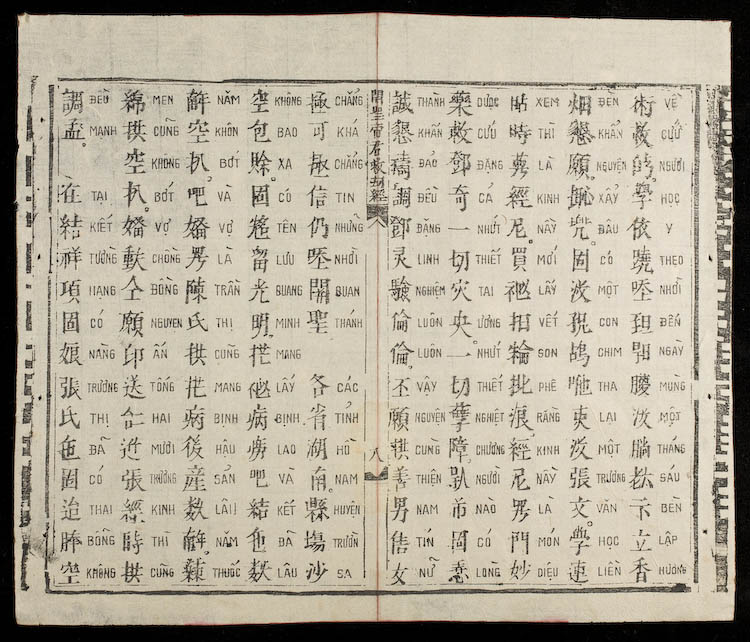 術救𠊛。學依蹺唑旦𣈜𦝃沒𣎃𦒹卞立香
VỀ CỨU NGƯỜI HỌC Y THEO NHỜI ĐẾN NGÀY MÙNG MỘT THÁNG SÁU BÈN LẬP HƯƠNG
畑懇願。兠。固沒鴣吏沒張文。學連
ĐÈN KHẨN NGUYỆN XẢY ĐÂU CÓ MỘT CON CHIM THA LẠI MỘT TRƯƠNG VĂN HỌC LIỀN
貼時羅經尼。買批痕。經尼羅門妙
XEM THÌ LÀ KINH NẦY MỚI LẤY VẾT SON PHÊ RẰNG KINH NẦY LÀ MÓN DIỆU
藥救鄧奇一切灾央。一切孽障。市固
DƯỢC CỨU ĐẶNG CẢ NHỨT THIẾT TAI ƯƠNG NHỨT THIẾT NGHIỆT CHƯƠNG NGƯỜI NÀO CÓ LÒNG
誠懇禱調鄧灵驗倫倫。丕願拱善男信女
THÀNH KHẨN ĐẢO ĐỀU ĐẶNG LINH NGHIỆM LUÔN LUÔN VẬY NGUYỆN CÙNG THIỆN NAM TÍN NỮ
關聖帝君救刼經 八
八
極可極信仍唑關聖 各省湖南。縣場沙
CHẲNG KHÁ CHẲNG TIN NHỮNG NHỜI QUAN THÁNH CÁC TỈNH HỒ NAM HUYỆN TRƯỜN SA
空包賒。固留光明。病痨吧結㐌
KHÔNG BAO XA CÓ TÊN LƯU QUANG MINH MANG LẤY BỊNH LAO VÀ KẾT ĐÃ LÂU
𢆥空扒。吧羅陳氏拱病後產𢆥。
NĂM KHÔN BỚT VÀ VỢ LÀ TRẦN THỊ CÙNG MANG BỊNH HẬU SẢN LÂU NĂM THUỐC
綿拱空扒。仝願印送張經時拱
MEN CÙNG KHÔNG BỚT VỢ CHỒNG ĐỒNG NGUYỆN ẤN TỐNG HAI MƯỜI TRƯƠNG KINH THÌ CÙNG
調孟。 在結祥項固娘張氏㐌固空
ĐỀU MẠNH TẠI KIẾT TƯỜNG HẠNG CÓ NÀNG TRƯƠNG THỊ ĐÃ CÓ THAI BỒNG KHÔNG